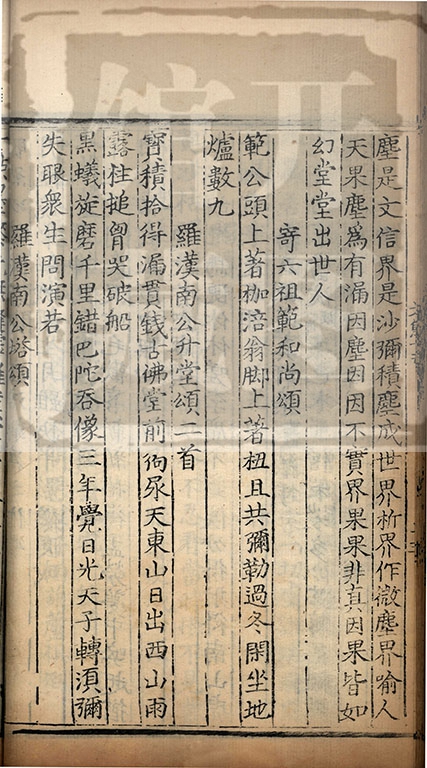 塵是文信界是沙彌積塵成世界析界作微塵界喻人
天果塵為有漏因塵因因不實界果果非真因果皆如
幻堂堂出世人
寄六祖範和尚頌
範公頭上著枷涪翁脚上著杻且共彌勒過冬閑坐地
爐數九
羅漢南公升堂頌二首
寶積拾得漏貫錢古佛堂前狗尿天東山日出西山雨
露柱搥胷哭破船
黑蟻旋磨千里錯巴陀吞像三年覺日光天子轉湏彌
失眼衆生問演若
羅漢南公塔頌